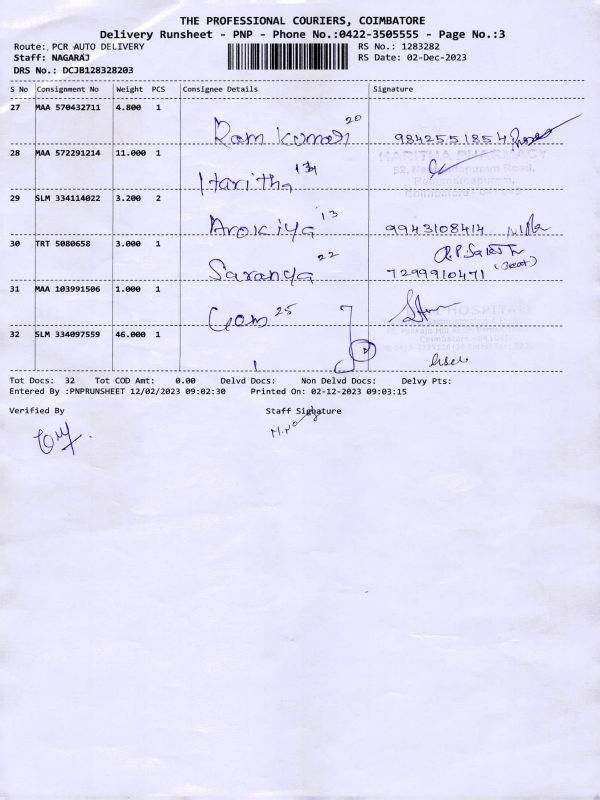 THE PROFESSIONAL COURIERS, COIMBATORE
Delivery Runsheet - PNP - Phone No.:0422-3505555 - Page No.:3
Route: PCR AUTO DELIVERY RS No.: 1283282
Staff: NAGARAJ RS Date: 02-Dec-2023
DRS No.: DCJB128328203
S No Consignment No Weight PCS Consignee Details Signature
27 MAA 570432711 4.800 1
Ram Kumar 20 9842551854
28 MAA 572291214 11.000 1 HARITHA PHARMACY
Haritha
29 SLM 334114022 3.200 2
Arokiya 13 9943108414
30 TRT 5080658 3.000 1
Saranya 22 7299910471
31 MAA 103991506 1.000 1
Gem 25 HOSPITAL
32 SLM 334097559 46.000 1
Tot Docs: 32 Tot COD Amt: 0.00 Delvd Docs: Non Delvd Docs: Delvy Pts:
Entered By :PNPRUNSHEET 12/02/2023 09:02:30 Printed On: 02-12-2023 09:03:15
Verified By Staff Signature